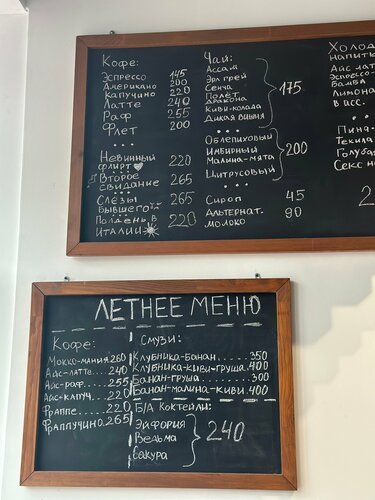 Кофе:
Эспрессо 145
Американо 200
Капучино 220
Латте 240
Раф 255
Флет 200
Невинный флирт 220
Второе свидание 265
Слёзы бывшего 265
Полдень в Италии 220
Чай:
Ассам
Эрл грей
Сенча
Полёт дракона
Киви-колада
Дикая вишня
175
Облепиховый
Имбирный
Малина-мята
Цитрусовый
200
Сироп 45
Альтернат. молоко 90
Холод
напитк
Айс лат
Эспрессо-
Бамба
Лимона
в асс.
Пина-
Текила
Голуба
Секс н
ЛЕТНЕЕ МЕНЮ
Кофе:
Мокко-мания 260
Айс-латте... 240
Айс-раф..... 255
Айс-капуч.... 220
Фраппе....... 220
Фраппучино 265
Смузи:
Клубника-банан....... 350
Клубника-киви-груша. 400
Банан-груша......... 300
Банан-малина-киви. 400
Б/А Коктейли:
Эйфория
Ведьма
Сакура
240